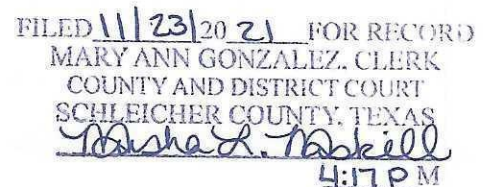 FILED 11/23/20 21 FOR RECORD
MARY ANN GONZALEZ. CLERK
COUNTY AND DISTRICT COURT
SCHLEICHER COUNTY, TEXAS
L.
4:17 P M